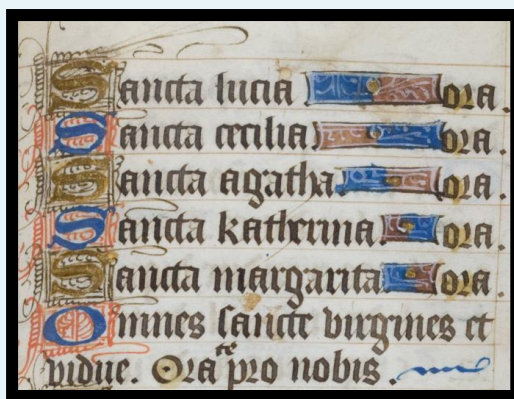 Sancta lucia ora.
Sancta cecilia ora.
Sancta agatha ora.
Sancta katherina ora.
Sancta margarita ora.
Omnes sancte virgines et
vidue. Orate pro nobis.